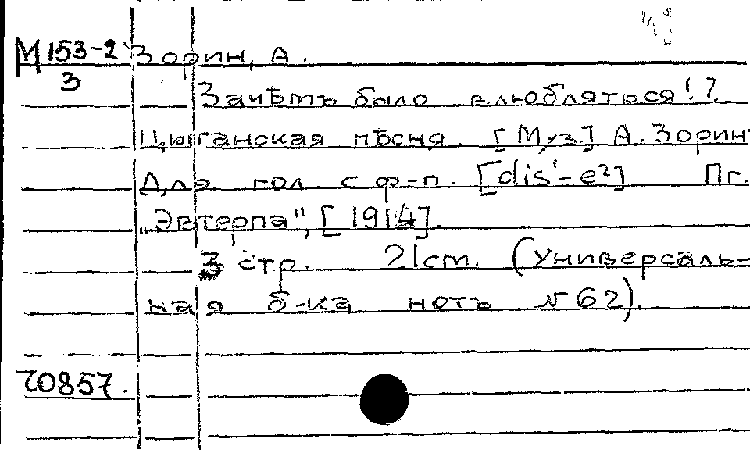 М 153-2 Зорин, А.
3
Зачѣмъ было влюбляться!?
Цыганская пѣсня. [Муз.] А. Зорин
Для гол. с ф-п. [dis'-e²] Пг.
„Эвтерпа", [1914].
3 стр. 21см. (Универсаль-
ная б-ка нотъ №62).
70857.